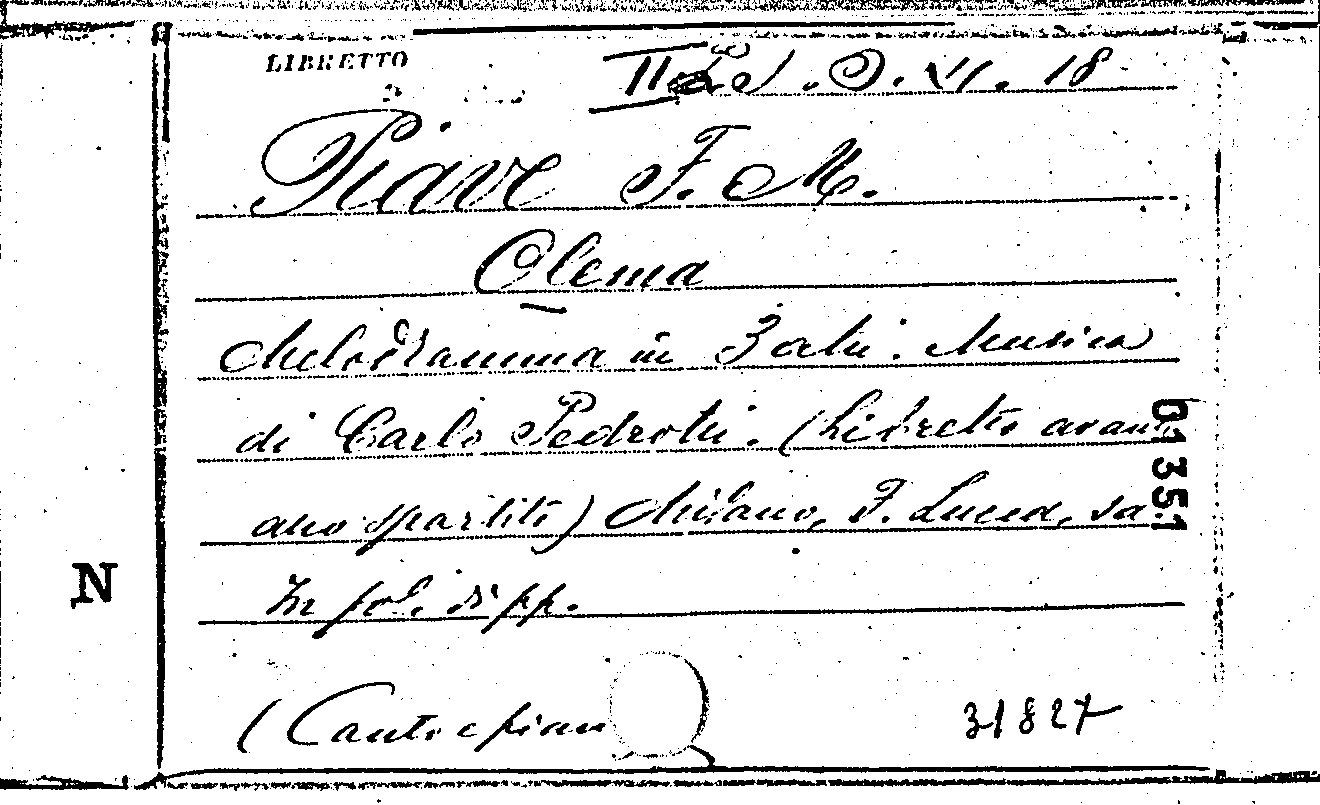 LIBRETTO
II. D. VI. 18
Piave F. M.
Olema
Melodramma in 3 atti. Musica
di Carlo Pedrotti. (Libretto avanti
allo spartito) Milano, F. Lucca, sa.
In fol. di pp.
(Canto e pian
31827
01351
N